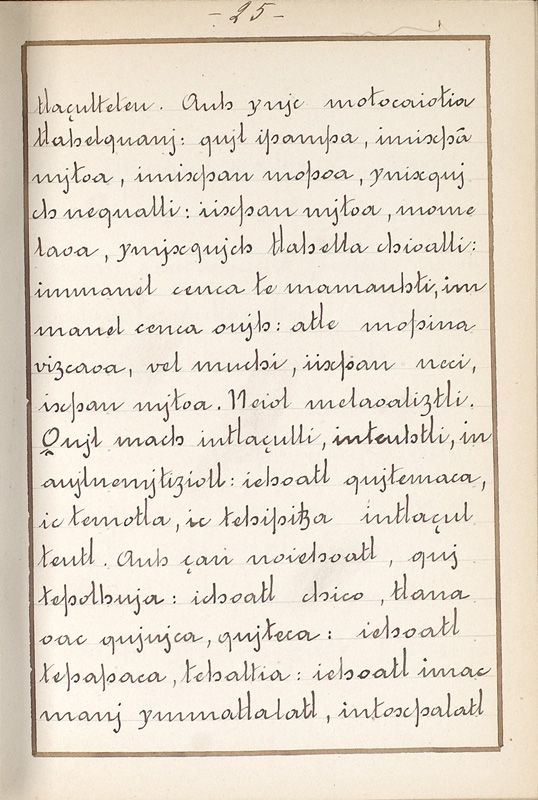 - 25 -
tlaçulteteu. Auh ynjc motocaiotia
tlahelquanj: qujl ipampa, imixpā
mjtoa, imixpan mopoa, ynixquj
ch nequalli: iixpan mjtoa, mome
laoa, ynjxqujch tlahella chioalli:
immanel cenca te mamauhti, im
manel cenca oujh: atle mopina
vizcaoa, vel muchi, iixpan neci,
ixpan mjtoa. Neiol melaoaliztli.
Qujl mach intlaçulli, inteuhtli, in
aujlnemjliziotl: iehoatl qujtemaca,
ic temotla, ic tehipitza intlaçul
teutl. Auh çan noiehoatl, quj
tepolhuja: iehoatl chico, tlana
oac qujujca, qujteca: iehoatl
tepapaca, tehaltia: iehoatl imac
manj ymmatlalatl, intoxpalatl